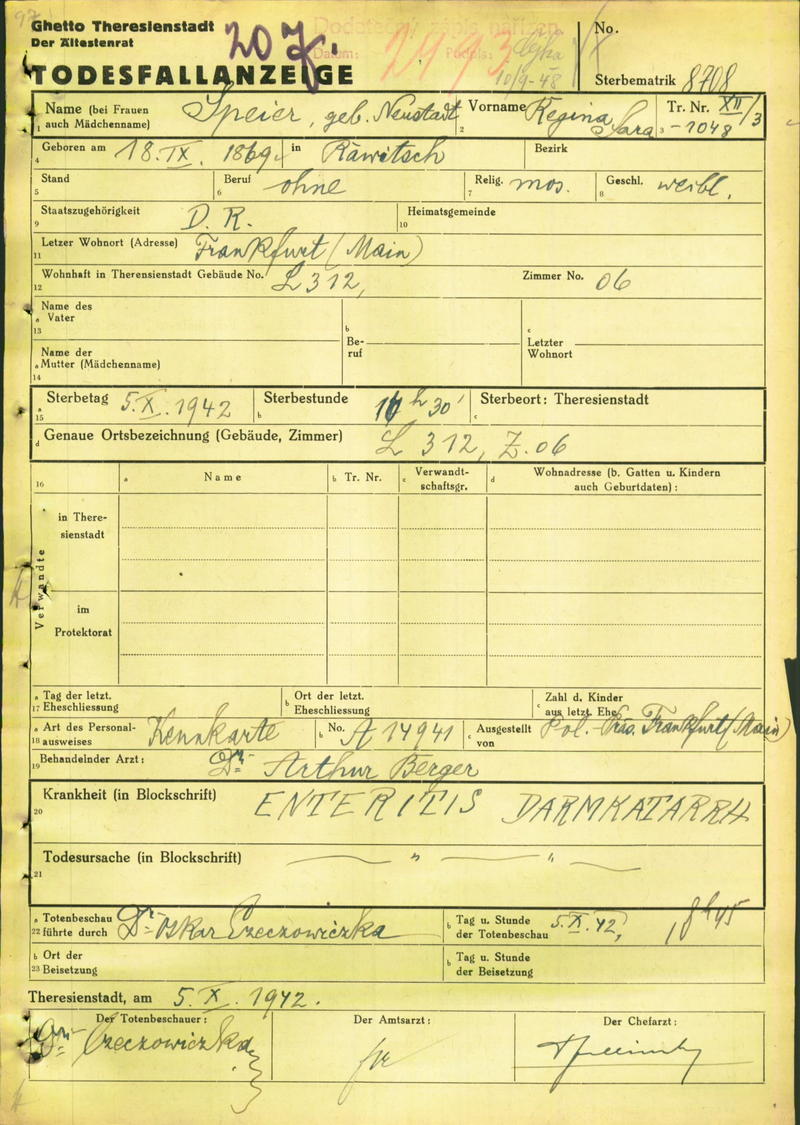 97
Ghetto Theresienstadt
Der Ältestenrat
207.
Dodatečný zápis nařízen
Datum: 2973 Podpis:
10/9-48
No.
TODESFALLANZEIGE
Sterbematrik 8708
1 Name (bei Frauen auch Mädchenname) Speier, geb. Neustadt 2 Vorname Regina Sara 3 Tr. Nr. XII/3 - 1048
4 Geboren am 18. IX. 1869. in Rawitsch Bezirk
5 Stand 6 Beruf ohne 7 Relig. mos. 8 Geschl. weibl.
9 Staatszugehörigkeit D. R. 10 Heimatsgemeinde
11 Letzer Wohnort (Adresse) Frankfurt (Main)
12 Wohnhaft in Theresienstadt Gebäude No. L 312, Zimmer No. 06
13 a Name des Vater b Beruf c Letzter Wohnort
14 a Name der Mutter (Mädchenname)
15 a Sterbetag 5. X. 1942 b Sterbestunde h 30' c Sterbeort: Theresienstadt
d Genaue Ortsbezeichnung (Gebäude, Zimmer) L 312, Z. 06
16 a Name b Tr. Nr. c Verwandtschaftsgr. d Wohnadresse (b. Gatten u. Kindern auch Geburtdaten):
Verwandte
in Theresienstadt
im Protektorat
17 a Tag der letzt. Eheschliessung b Ort der letzt. Eheschliessung c Zahl d. Kinder aus letzt. Ehe
18 a Art des Personalausweises Kennkarte b No. A 14941 c Ausgestellt von Pol. Präs. Frankfurt (Main)
19 Behandelnder Arzt: Dr. Arthur Berger
20 Krankheit (in Blockschrift) ENTERITIS DARMKATARRH
21 Todesursache (in Blockschrift) — " — " —
22 a Totenbeschau führte durch Dr. Oskar Czeczowiczka b Tag u. Stunde der Totenbeschau 5. X. 42, 18h45
23 b Ort der Beisetzung b Tag u. Stunde der Beisetzung
Theresienstadt, am 5. X. 1942.
Der Totenbeschauer: Der Amtsarzt: Der Chefarzt:
Dr. Czeczowiczka